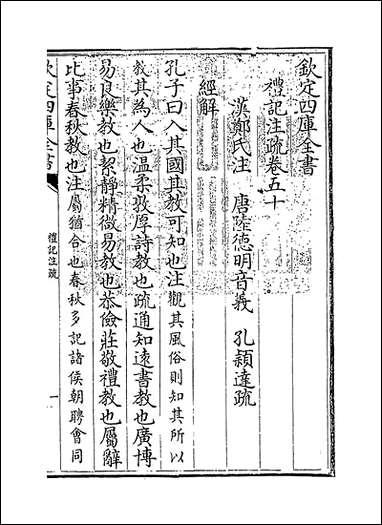 欽定四庫全書
禮記注疏卷五十
漢鄭氏注 唐陸德明音義 孔穎達疏
經解
孔子曰入其國其教可知也注觀其風俗則知其所以
教其為人也温柔敦厚詩教也疏通知遠書教也廣博
易良樂教也絜靜精微易教也恭儉莊敬禮教也屬辭
比事春秋教也注屬猶合也春秋多記諸侯朝聘會同
欽定四庫全書
禮記注疏
一